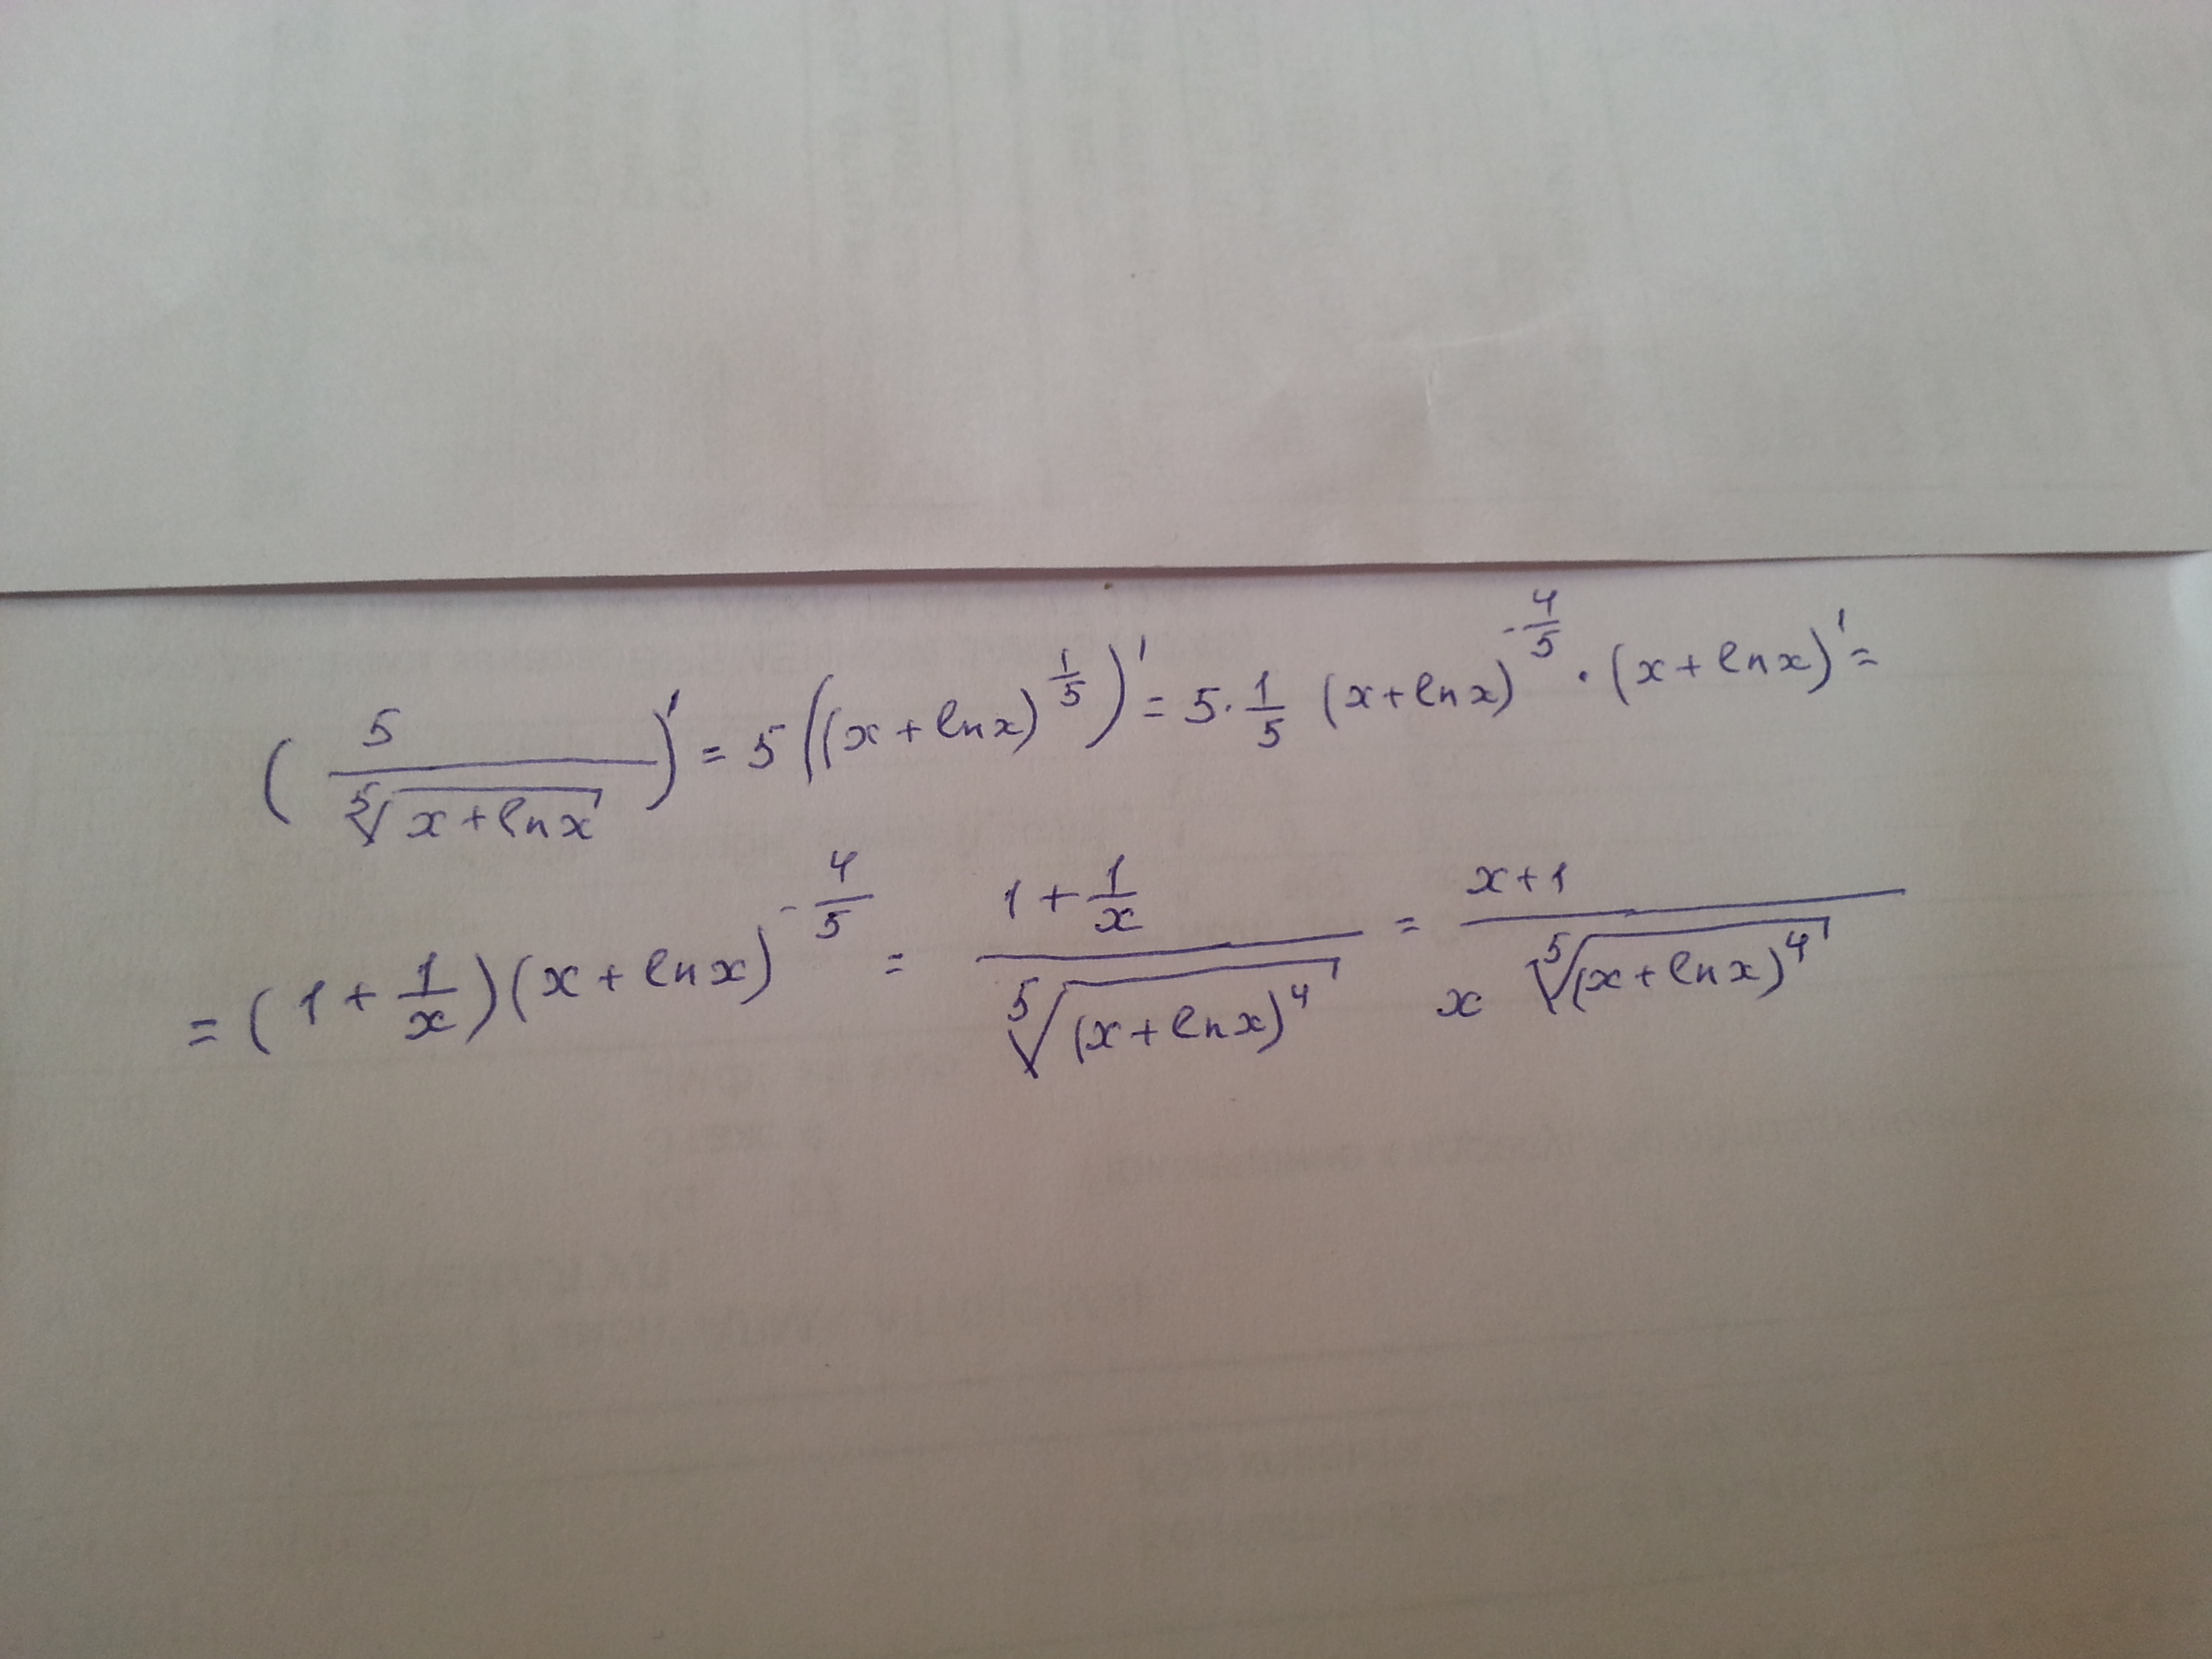 (5/⁵√(x+ln x))' = 5((x+ln x)^(1/5))' = 5·1/5 (x+ln x)^(-4/5) · (x+ln x)' =
= (1+1/x)(x+ln x)^(-4/5) = (1+1/x)/⁵√((x+ln x)^4) = (x+1)/(x ⁵√((x+ln x)^4))